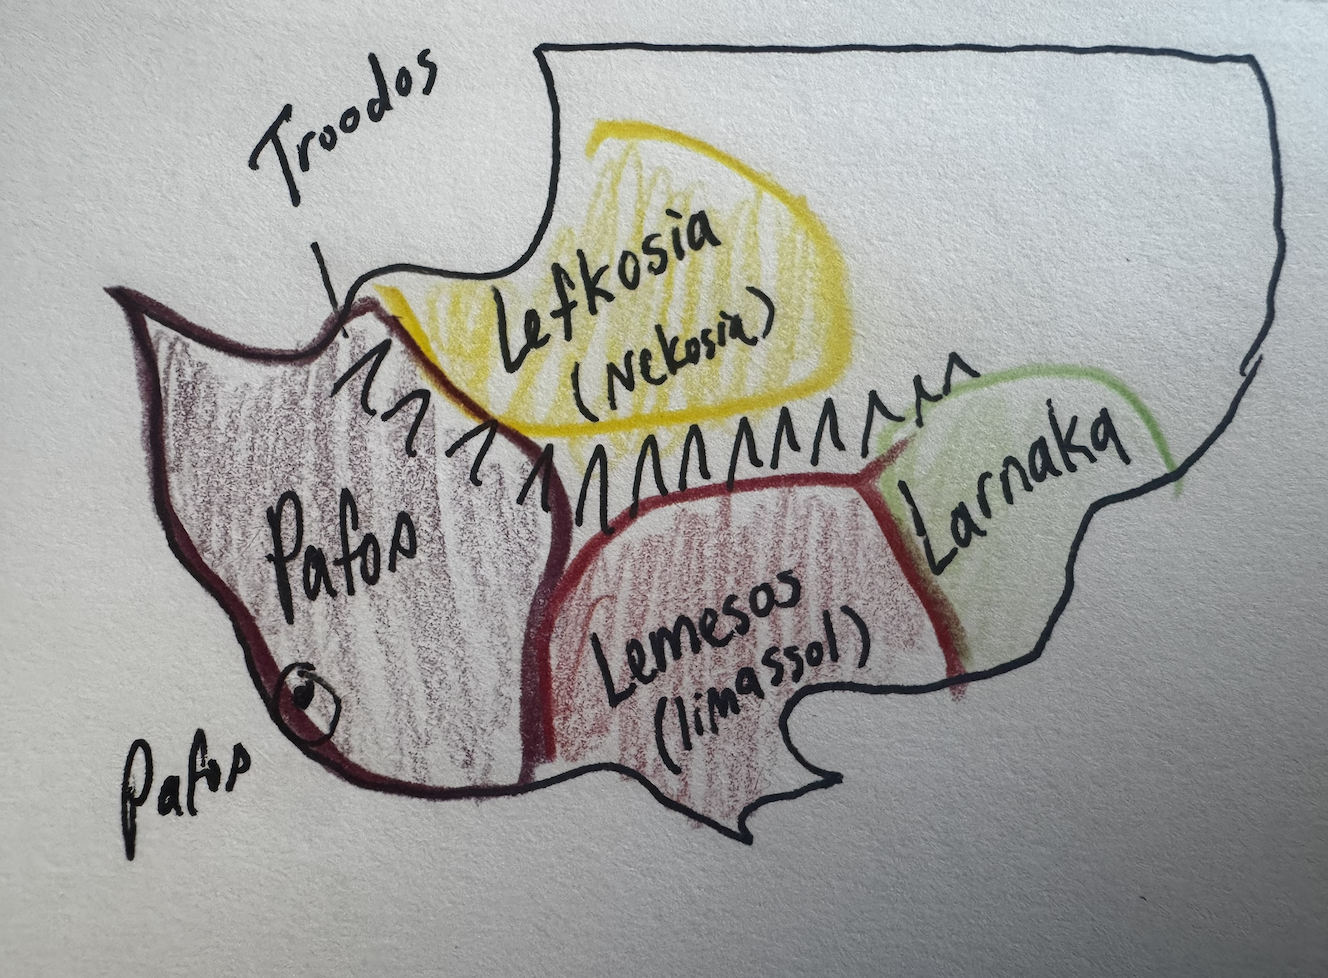 Troodos
Lefkosia
(Nekosia)
Larnaka
Pafos
Lemesos
(limassol)
Pafos